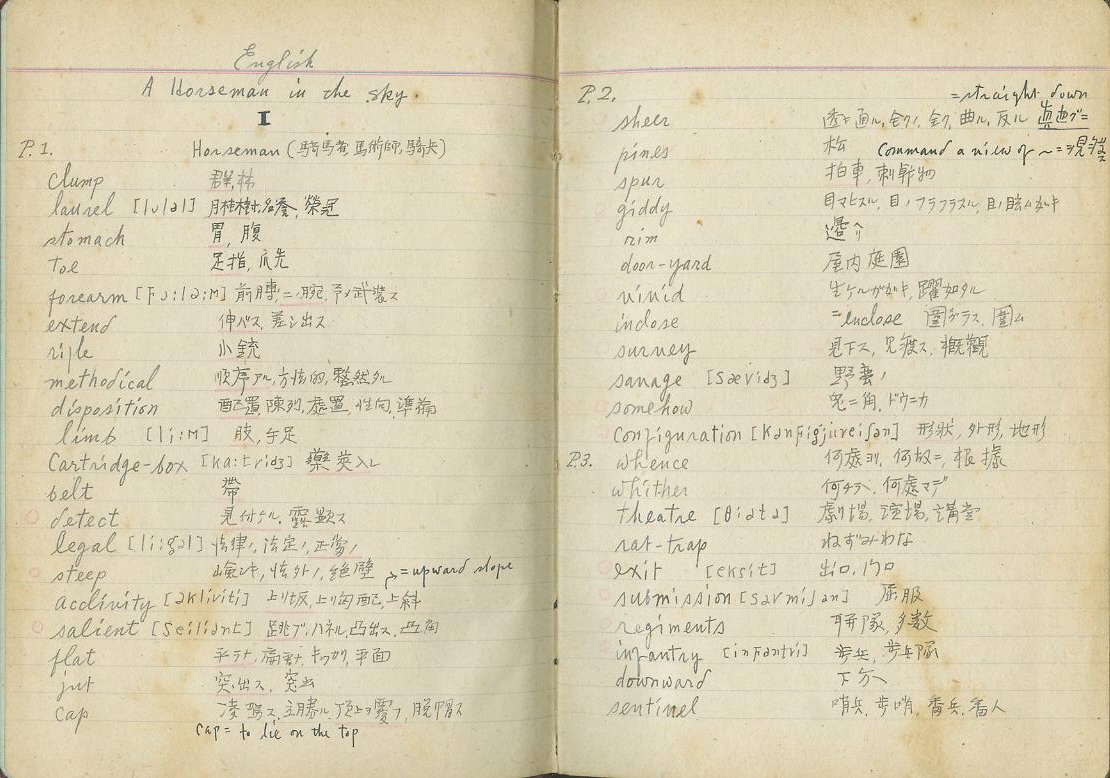 English
A Horseman in the sky.
I
P. 1. Horseman (騎馬者, 馬術師, 騎兵)
clump 群, 林
laurel [lɔləl] 月桂樹, 名誉, 榮冠
stomach 胃, 腹
toe 足指, 爪先
forearm [fɔ:lɑ:m] 前膊, 二ノ腕, 予メ武装ス
extend 伸バス, 差シ出ス
rifle 小銃
methodical 順序アル, 方法的, 整然タル
disposition 配置, 陳列, 處置, 性向, 準備
limb [li:m] 肢, 手足
Cartridge-box [ka:tridʒ] 藥莢入レ
belt 帶
detect 見付ケル, 露顯ス
legal [li:gəl] 法律ノ, 法定ノ, 正當ノ
steep 嶮シキ, 法外ノ, 絶壁
acclivity [əkliviti] 上リ坂, 上リ勾配, 上斜 = upward slope
salient [seiliənt] 跳ブ, ハネル, 凸出ス, 凸角
flat 平ラナ, 平面
jut 突出ス, 突出
cap 凌駕ス, 脱帽ス
cap = to lie on the top
P. 2. = straight down
sheer 透キ通ル, 全クノ, 全ク, 曲ル, 反ル
pines 松 Command a view of ~ =
spur 拍車, 刺戟物
giddy 目マヒスル, 目ノフラフラスル
rim 邊
door-yard 屋内庭園
vivid 生ケルガ如キ, 躍如タル
inclose = enclose 圍ム
survey 見下ス, 見渡ス, 概觀
savage [sævidʒ] 野蠻ノ
somehow 兎ニ角, ドウニカ
configuration [kənfigjureiʃən] 形狀, 外形, 地形
P. 3. whence 何處ヨリ, 何故ニ, 根據
whither 何處マデ
theatre [θiətə] 劇場, 演場, 講堂
rat-trap ねずみわな
exit [eksit] 出口, 門口
submission [səvmiʃən] 屈服
regiments 聯隊, 多数
infantry [infəntri] 歩兵, 歩兵隊
downward 下方ヘ
sentinel 哨兵, 歩哨, 番兵, 番人